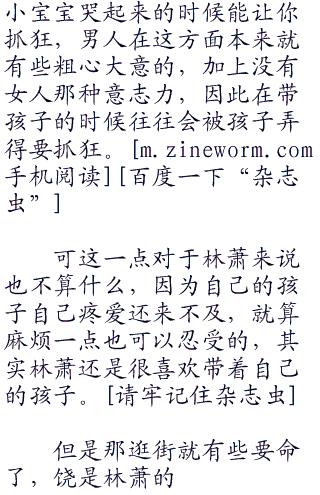 小宝宝哭起来的时候能让你
抓狂，男人在这方面本来就
有些粗心大意的，加上没有
女人那种意志力，因此在带
孩子的时候往往会被孩子弄
得要抓狂。[m.zineworm.com
手机阅读][百度一下“杂志
虫”]
可这一点对于林萧来说
也不算什么，因为自己的孩
子自己疼爱还来不及，就算
麻烦一点也可以忍受的，其
实林萧还是很喜欢带着自己
的孩子。[请牢记住杂志虫]
但是那逛街就有些要命
了，饶是林萧的